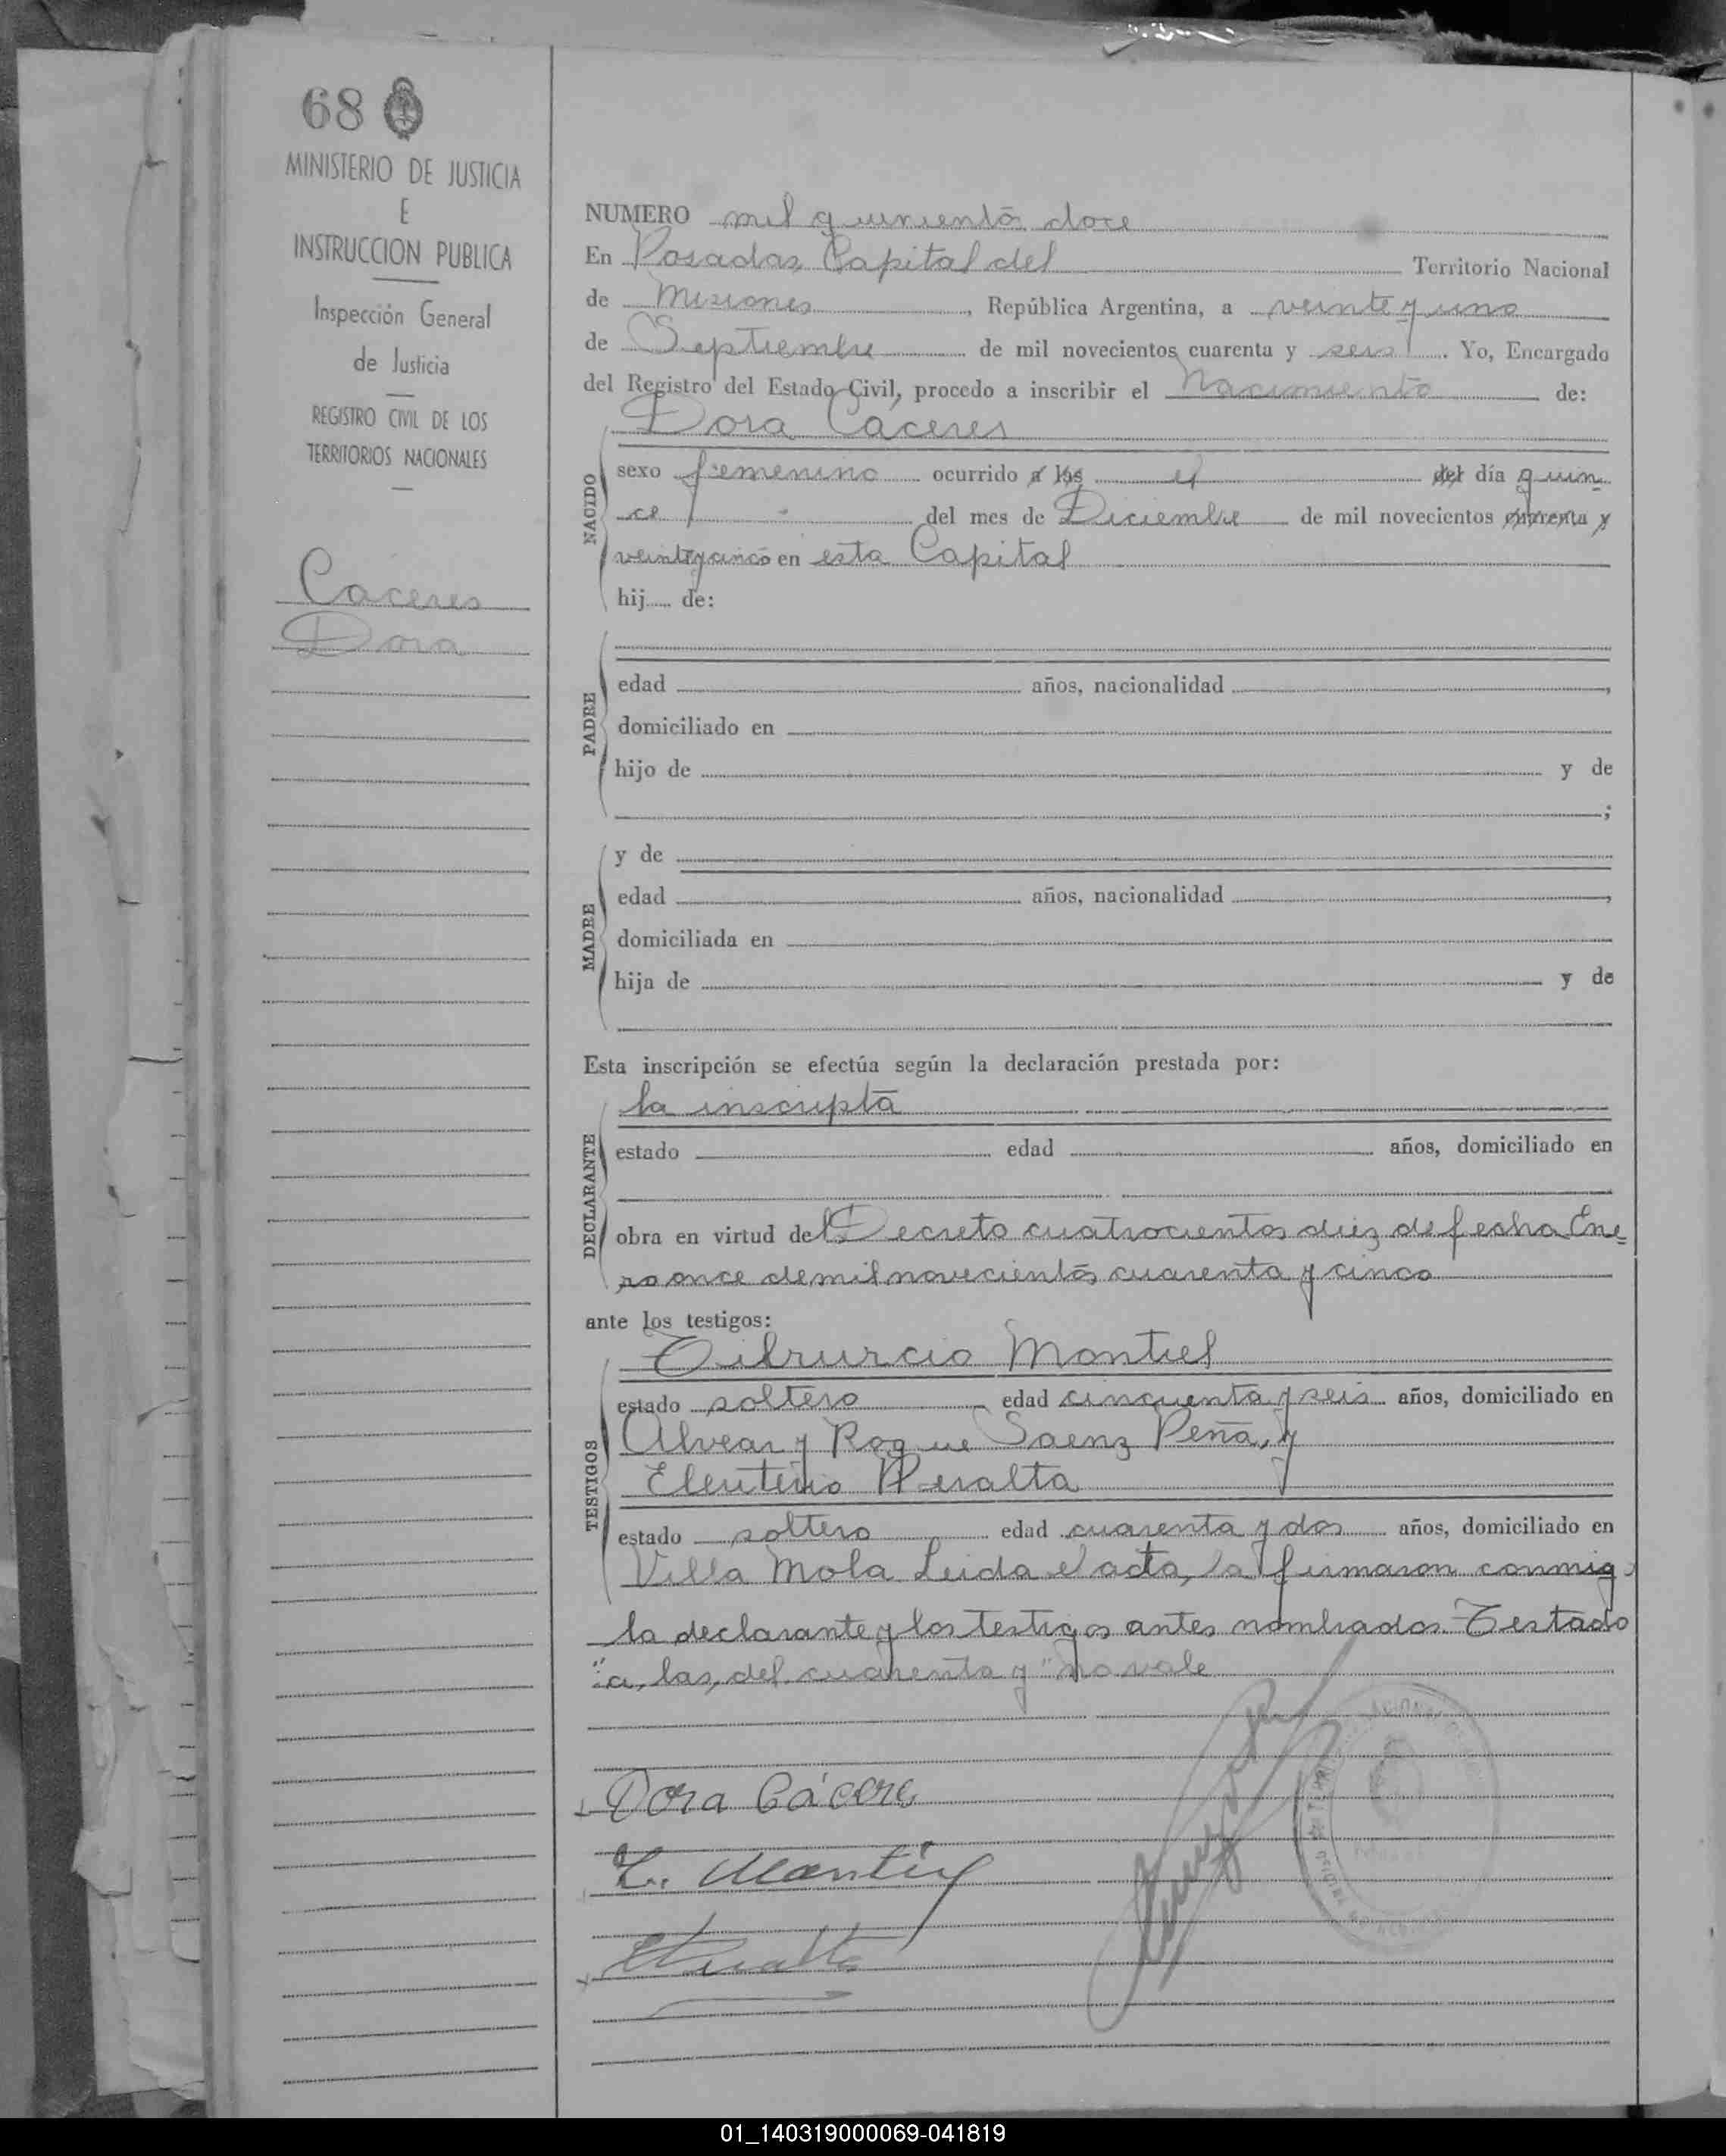 68
MINISTERIO DE JUSTICIA
E
INSTRUCCION PUBLICA
Inspección General
de Justicia
REGISTRO CIVIL DE LOS
TERRITORIOS NACIONALES
Caceres
Dora
NUMERO mil quinientos doce
En Posadas, Capital del Territorio Nacional
de Misiones, República Argentina, a veinte y uno
de Septiembre de mil novecientos cuarenta y seis. Yo, Encargado
del Registro del Estado Civil, procedo a inscribir el Nacimiento de:
Dora Caceres
NACIDO
sexo femenino ocurrido a las el del día quin
ce del mes de Diciembre de mil novecientos cuarenta y
veinte y cinco en esta Capital
hij de:
PADRE
edad años, nacionalidad ,
domiciliado en
hijo de y de
;
MADRE
y de
edad años, nacionalidad ,
domiciliada en
hija de y de
Esta inscripción se efectúa según la declaración prestada por:
DECLARANTE
la inscripta
estado edad años, domiciliado en
obra en virtud del Decreto cuatrocientos diez de fecha Ene
ro once de mil novecientos cuarenta y cinco
ante los testigos:
TESTIGOS
Tibrurcio Montiel
estado soltero edad cincuenta y seis años, domiciliado en
Alvear y Roque Saenz Peña, y
Eleuterio Peralta
estado soltero edad cuarenta y dos años, domiciliado en
Villa Mola Leida el acta, la firmaron conmigo
la declarante y los testigos antes nombrados. Testado
"a, las, del, cuarenta y" no vale
Dora Cácere
01_140319000069-041819